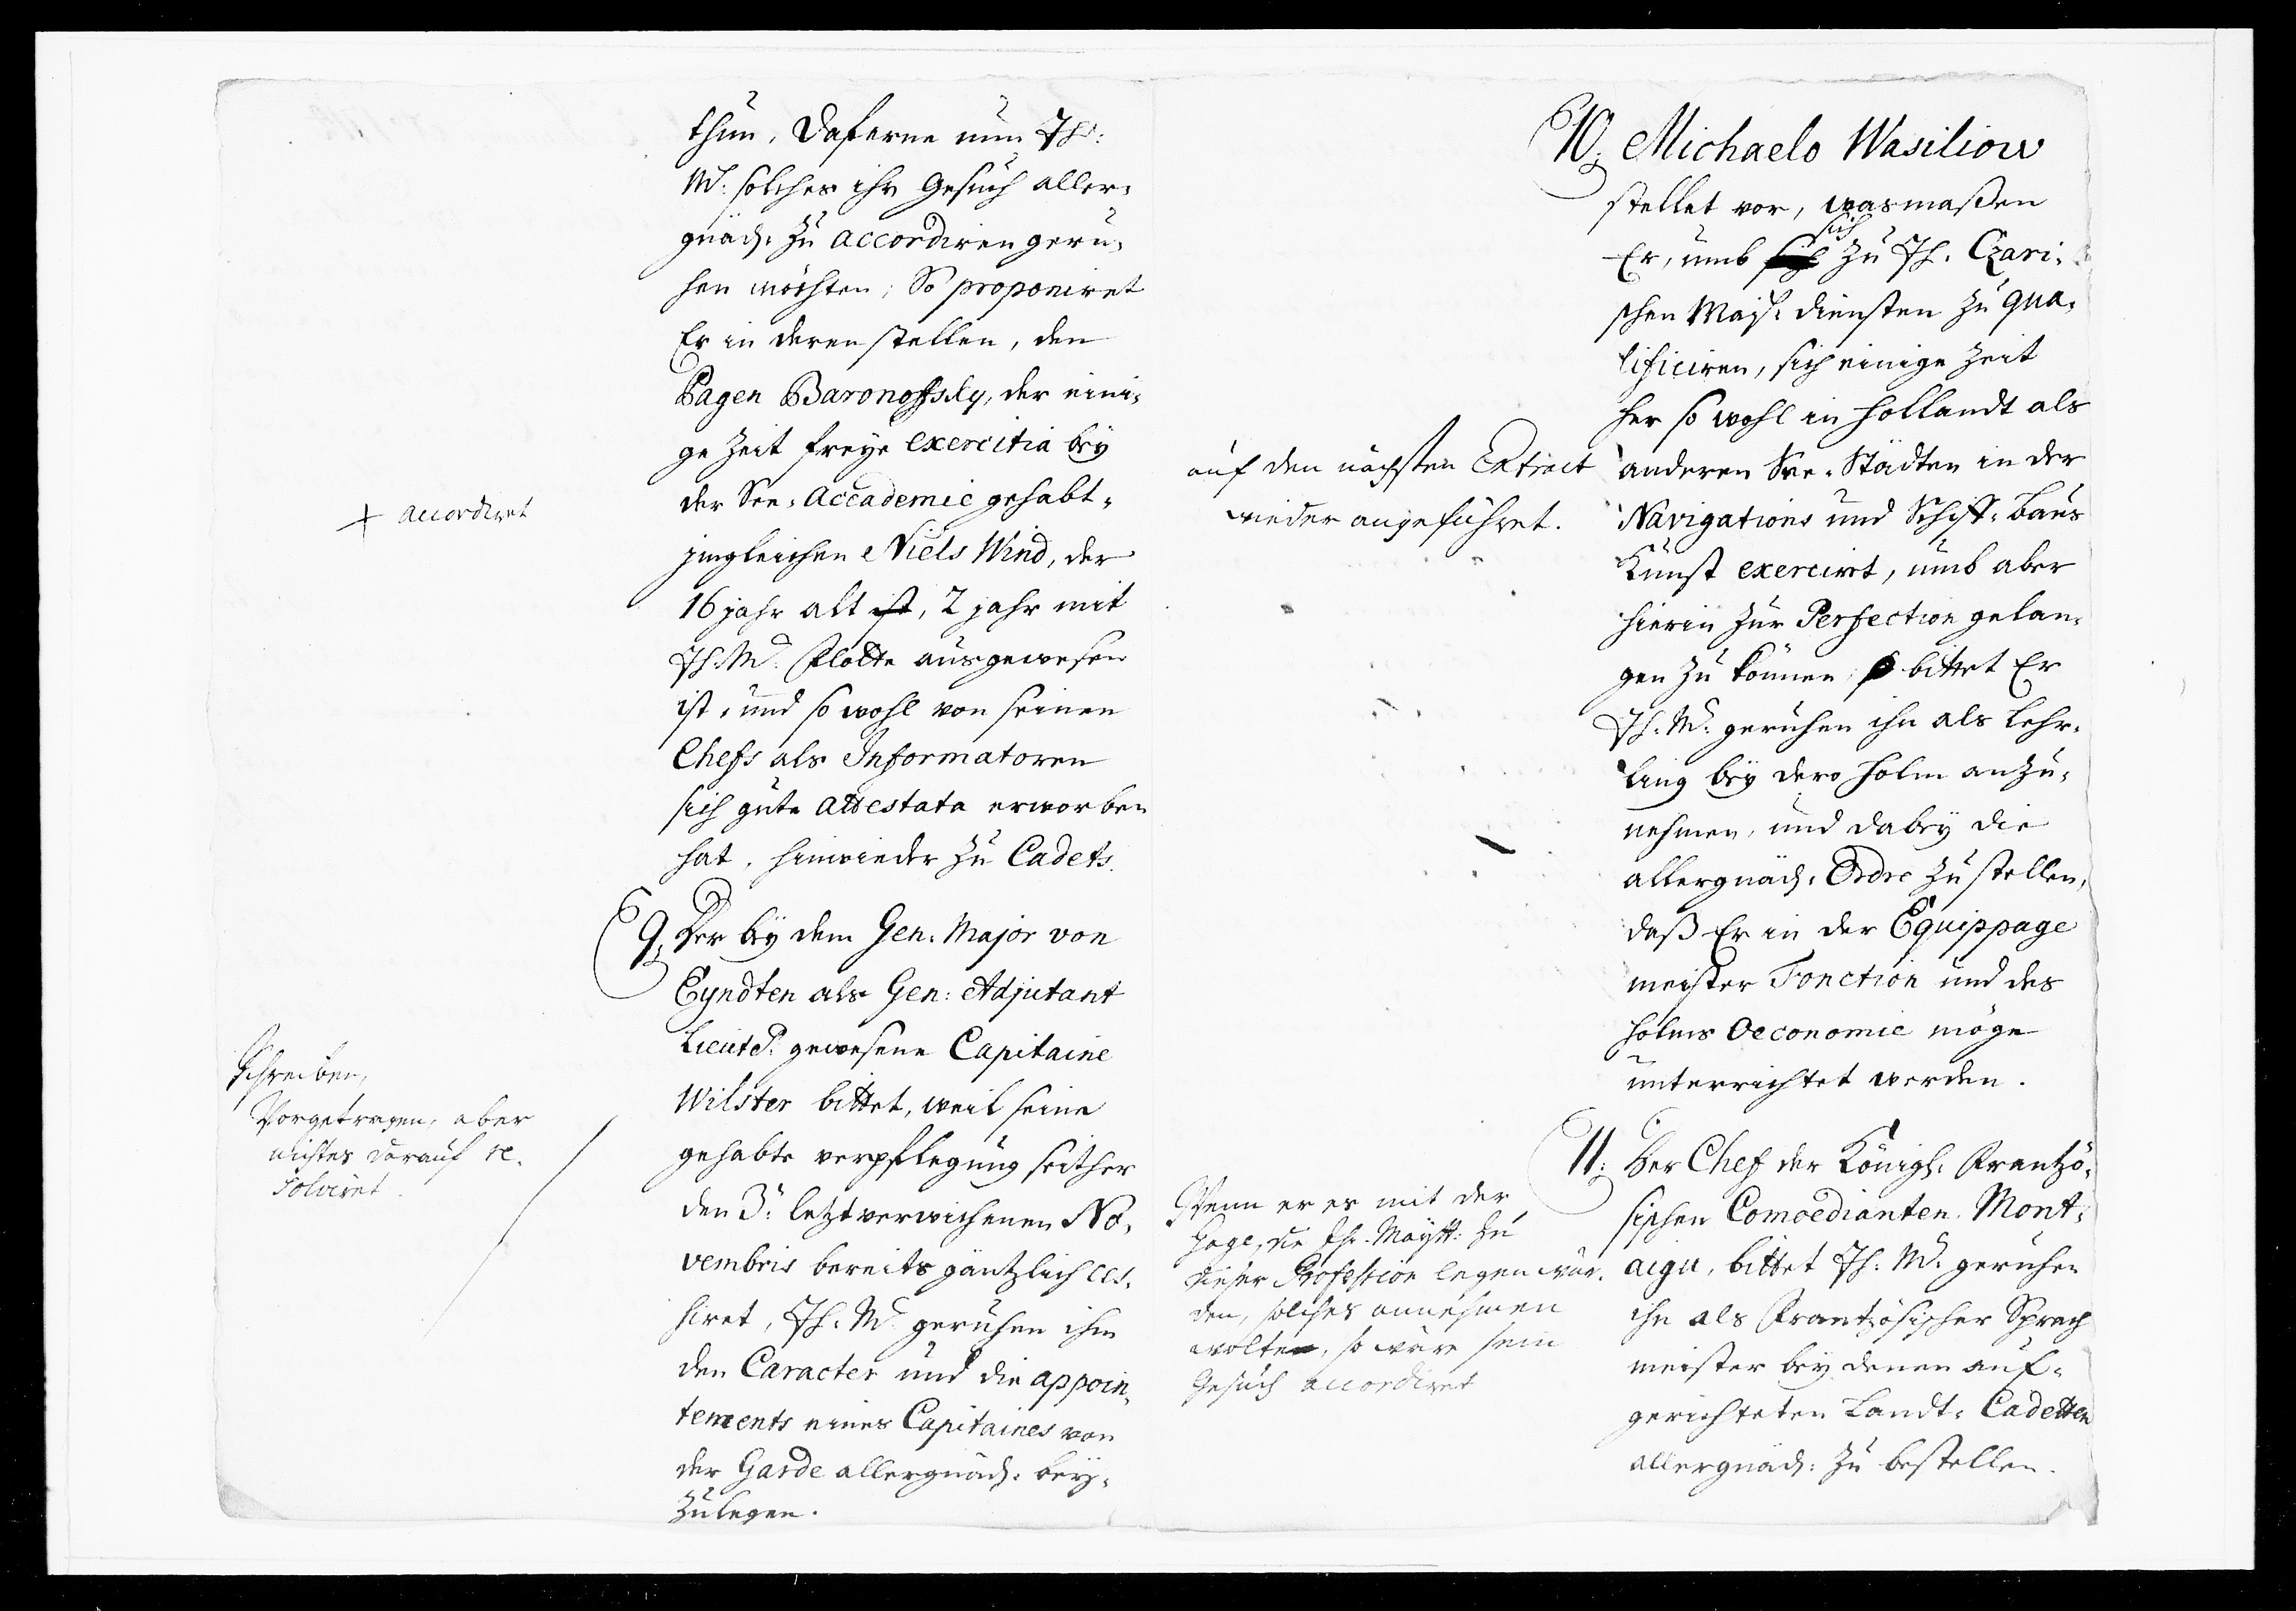 thun, Daferne nun Ih:
M: solches ihr Gesuch aller-
gnäd: zu accordiren geru-
hen möchten; So proponiret
Er in deren stellen, den
Pagen Baronoffsky, der eini-
ge Zeit freye exercitia bey
der See-Accademie gehabt,
+ accordiret
jmgleichen Niels Wind, der
16 jahr alt ist, 2 jahr mit
Ih. M. Flotte ausgewesen
ist, und so wohl von seinen
Chefs als Informatoren
sich gute attestata erworben
hat, hinwieder zu Cadets.
9. Der bey dem Gen. Major von
Eyndten als Gen: Adjutant
Lieut. gewesene Capitaine
Wilster bittet, weil seine
gehabte verpflegung seither
den 3. letzt verwichenen No-
vembris bereits gäntzlich ces-
siret, Ih. M. geruhen ihm
den Caracter und die appoin-
tements eines Capitaines von
der Garde allergnäd: bey-
zulegen.
Schreiben,
Vorgetragen, aber
nichtes darauf re-
solviret.
10. Michaelo Wasiliow
stellet vor, wasmaßen
Er, umb sich zu Ih. Czari-
schen Maj. diensten zu qua-
lificiren, sich einige Zeit
her so wohl in Hollandt als
anderen See-Städten in der
Navigations und Schiff-Baus
Kunst exerciret, umb aber
hierin zur Perfection gelan-
gen zu können, bittet Er
Ih. M. geruhen ihn als Lehr-
ling bey dero Holm anzu-
nehmen, und dabey die
allergnäd: Ordre zu stellen,
daß Er in der Equippage
meister Fonction und des
Holms Oeconomie möge
unterrichtet werden.
auf den nächsten Extract
wieder angeführet.
11. Der Chef der Königl: Frantzö-
sischen Comoedianten Mont-
aigu, bittet Ih. M. geruhen
ihn als Frantzösischer Sprach
meister bey denen auf-
gerichteten Landt-Cadetten
allergnäd: zu bestellen.
Wenn er es mit der
Gage, die Ihr. Maytt: zu
dieser Profession legen wür-
den, solches annehmen
wolte, so wäre sein
Gesuch accordiret